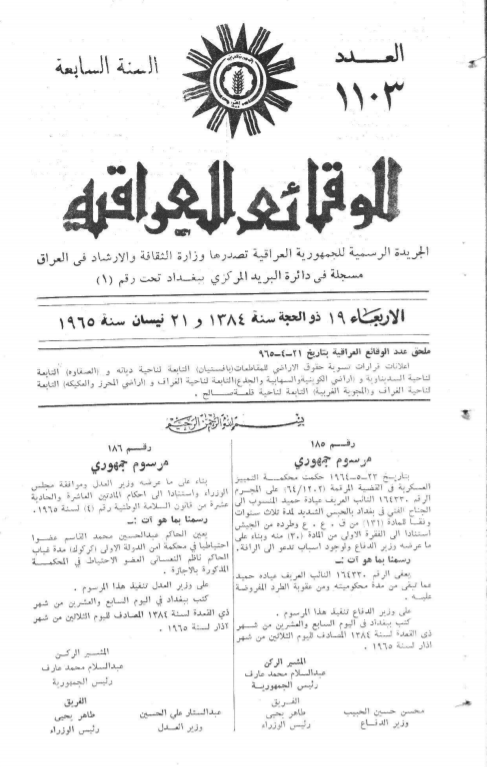 العدد
١١٠٣
السنة السابعة
الوقائع العراقية
الجريدة الرسمية للجمهورية العراقية تصدرها وزارة الثقافة والارشاد في العراق
مسجلة في دائرة البريد المركزي ببغداد تحت رقم (١)
الاربعاء ١٩ ذو الحجة سنة ١٣٨٤ و ٢١ نيسان سنة ١٩٦٥
ملحق عدد الوقائع العراقية بتاريخ ٢١-٤-٩٦٥
اعلانات قرارات تسوية حقوق الاراضي للمقاطعات (بافستيان) التابعة لناحية ديانه و (الصفاوه) التابعة
لناحية السديناوية و (اراضي الكوينية والسهابية والجدع) التابعة لناحية الغراف و (اراضي المحرز والعكيكه) التابعة
لناحية الغراف و (المجوبة الغربية) التابعة لناحية قلعة صالح .
بسم الله الرحمن الرحيم
رقم ١٨٥
مرسوم جمهوري
بتاريخ ٢٣-٥-١٩٦٤ حكمت محكمة التمييز
العسكرية في القضية المرقمة (٦٤/١٢٠٢) على المجرم
الرقم ١٦٤٣٣٠ النائب العريف عيادة حميد المنسوب الى
الجناح الفني في بغداد بالحبس الشديد لمدة ثلاث سنوات
وفقا للمادة (١٣١) من ق . ع . ع وطرده من الجيش
استنادا الى الفقرة الاولى من المادة (٣٠) منه وبناء على
ما عرضه وزير الدفاع ولوجود اسباب تدعو الى الرأفة.
رسمنا بما هو آت :ـ
يعفى الرقم ١٦٤٣٣٠ النائب العريف عياده حميد
عما تبقى من مدة محكوميته ومن عقوبة الطرد المفروضة
عليه .
على وزير الدفاع تنفيذ هذا المرسوم .
كتب ببغداد في اليوم السابع والعشرين من شهر
ذي القعدة لسنة ١٣٨٤ المصادف لليوم الثلاثين من شهر
اذار لسنة ١٩٦٥ .
المشير الركن
عبدالسلام محمد عارف
رئيس الجمهورية
الفريق
طاهر يحيى
رئيس الوزراء
محسن حسين الحبيب
وزير الدفاع
رقم ١٨٦
مرسوم جمهوري
بناء على ما عرضه وزير العدل وموافقة مجلس
الوزراء واستنادا الى احكام المادتين العاشرة والحادية
عشرة من قانون السلامة الوطنية رقم (٤) لسنة ١٩٦٥.
رسمنا بما هو آت :ـ
يعين الحاكم عبدالحسين محمد القاسم عضوا
احتياطيا في محكمة امن الدولة الاولى (كركوك) مدة غياب
الحاكم ناظم النعساني العضو الاحتياط في المحكمة
المذكورة بالاجازة .
على وزير العدل تنفيذ هذا المرسوم .
كتب ببغداد في اليوم السابع والعشرين من شهر
ذي القعدة لسنة ١٣٨٤ المصادف لليوم الثلاثين من شهر
اذار لسنة ١٩٦٥ .
المشير الركن
عبدالسلام محمد عارف
رئيس الجمهورية
الفريق
طاهر يحيى
رئيس الوزراء
عبدالستار علي الحسين
وزير العدل